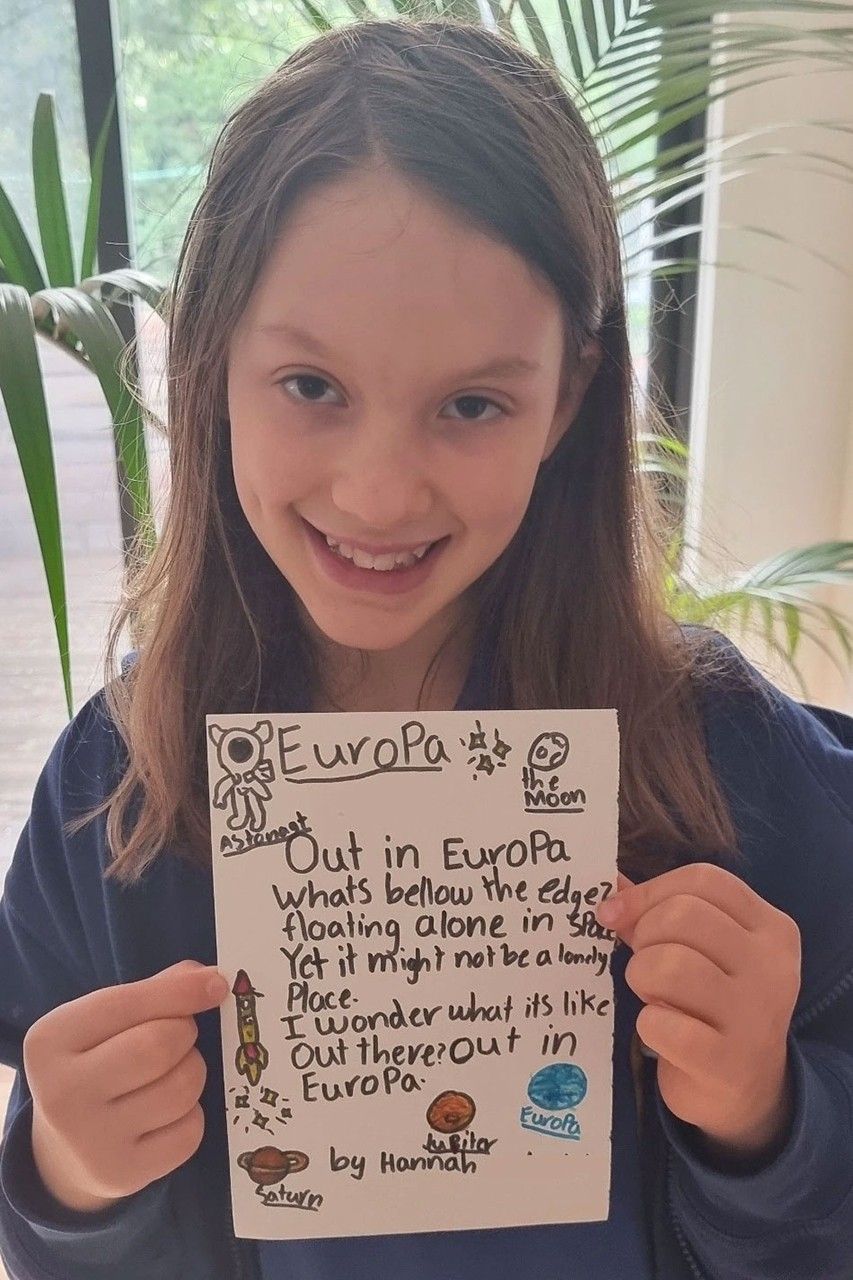 EuroPa
the
Moon
Astonaat
Out in EuroPa
whats bellow the edge?
floating alone in space
Yet it might not be a lonely
Place.
I wonder what its like
Out there? Out in
EuroPa.
EuroPa
Jupitar
by Hannah
Saturn